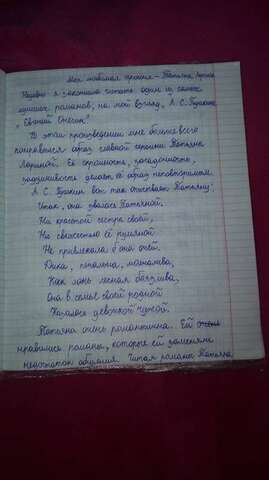 Моя любимая героиня – Татьяна Ларина
Недавно я закончила читать один из самых
лучших романов, на мой взгляд, А. С. Пушкина
„Евгений Онегин".
В этом произведении мне больше всего
понравился образ главной героини Татьяны
Лариной. Её скромность, загадочность,
задумчивость делает её образ неповторимым.
А. С. Пушкин вот так описывает Татьяну:
Итак, она звалась Татьяной.
Ни красотой сестры своей,
Ни свежестью её румяной
Не привлекла б она очей.
Дика, печальна, молчалива,
Как лань лесная боязлива,
Она в семье своей родной
Казалась девочкой чужой.
Татьяна очень романтична. Ей
нравились романы, которые ей заменяли
недостаток общения. Читая романы Татьяна